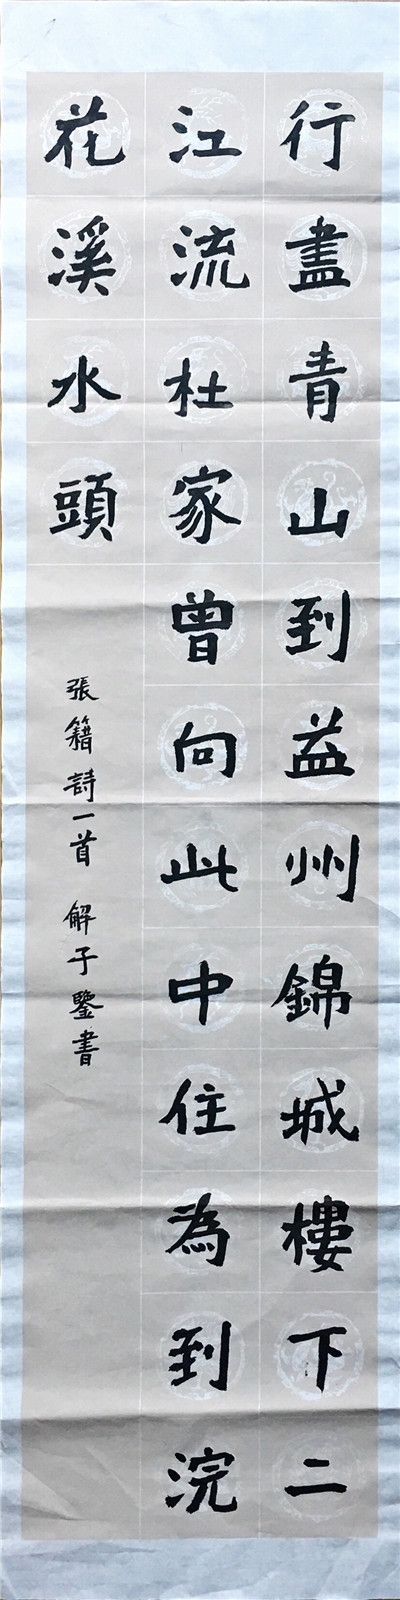 行盡青山到益州錦城樓下二
江流杜家曾向此中住為到浣
花溪水頭
張籍詩一首 解子鑒書